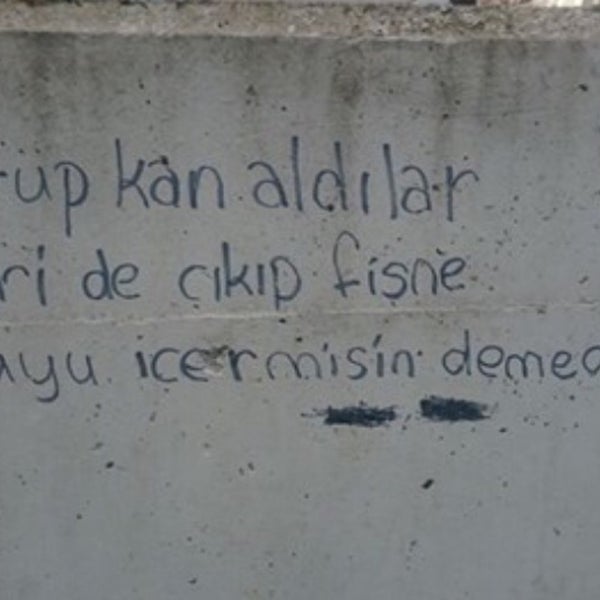 tüp kan aldılar
ri de çıkıp fişne
uyu içermisin demed